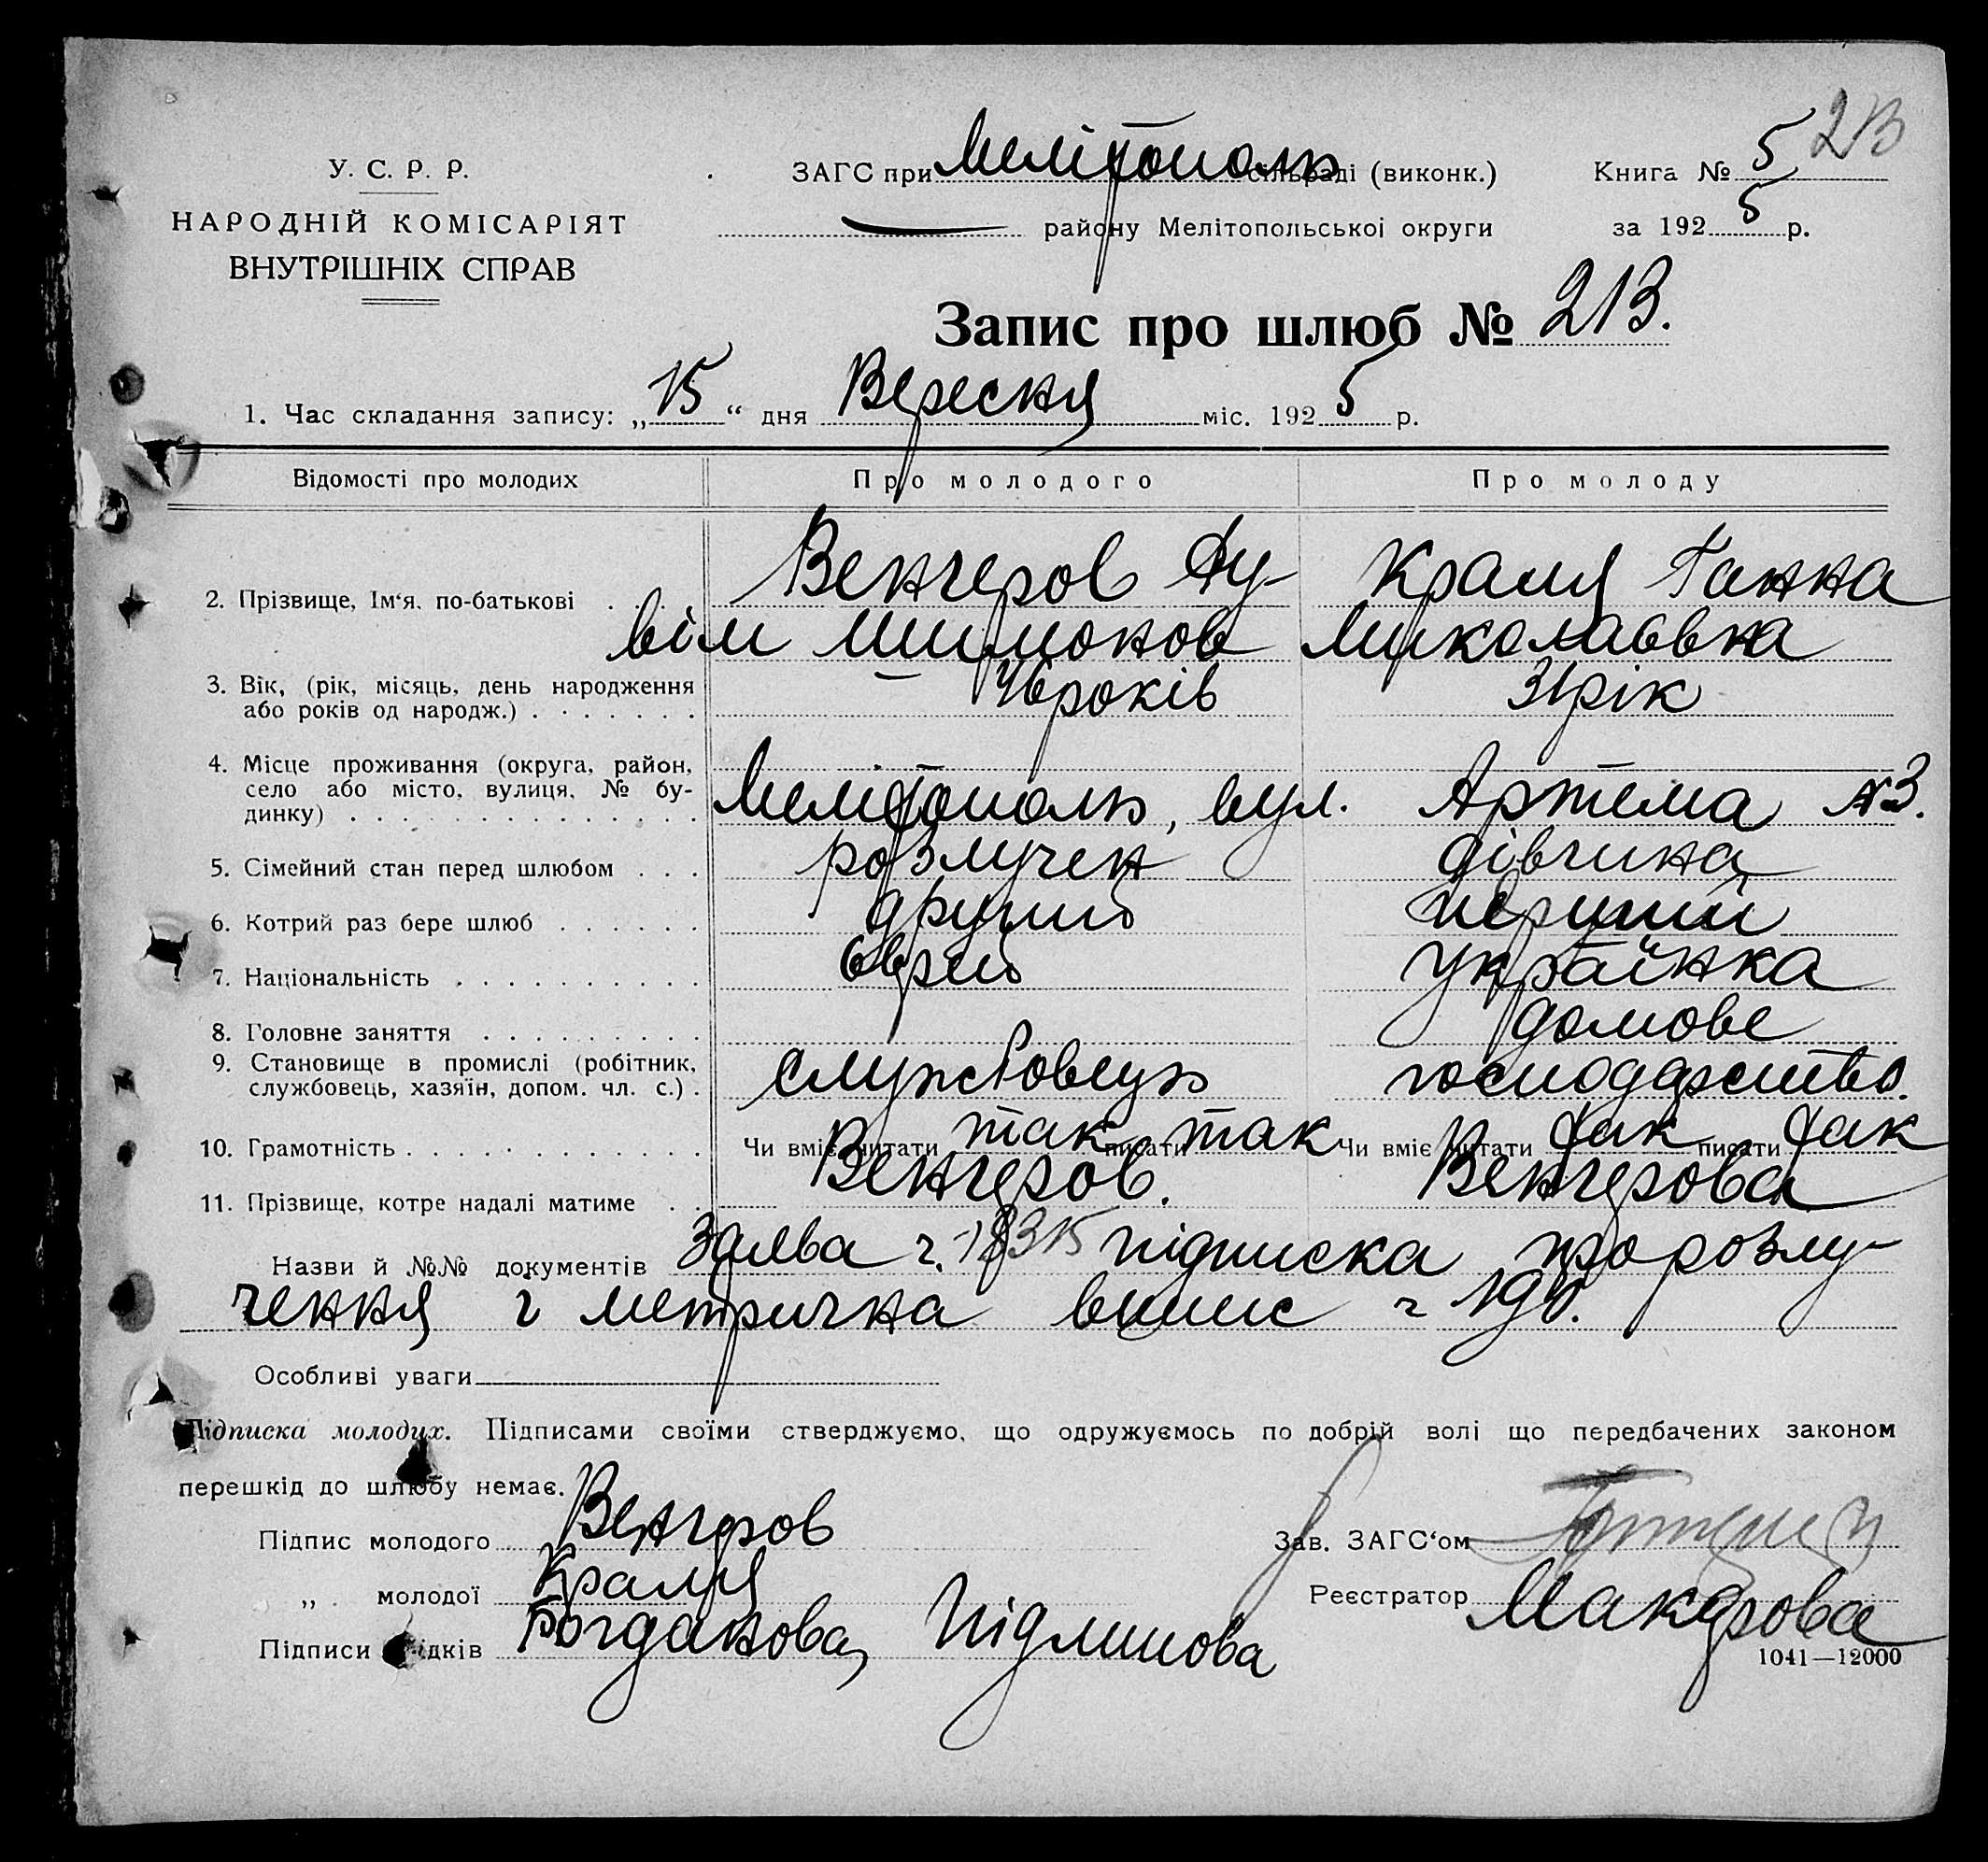 213
У. С. Р. Р.
НАРОДНІЙ КОМІСАРІЯТ
ВНУТРІШНІХ СПРАВ
ЗАГС при Мелітополь сільраді (виконк.)
— району Мелітопольськоі округи
Книга № 5
за 1925 р.
Запис про шлюб № 213.
1. Час складання запису: „15“ дня Вересня міс. 1925 р.
Відомості про молодих Про молодого Про молоду
2. Прізвище, Ім‘я, по-батькові . . . Венгеров Ду- Краля Ганна
вім Шимонов Миколаєвна
3. Вік, (рік, місяць, день народження
або років од народж.) . . . . . . . 46 років 31 рік
4. Місце проживання (округа, район,
село або місто, вулиця, № бу-
динку) . . . . . . . . . . . . . . Мелітополь, вул. Артема №3.
5. Сімейний стан перед шлюбом . . . розлучен дівчина
6. Котрий раз бере шлюб . . . . . . другий перший
7. Національність . . . . . . . . . . Єврей Українка
8. Головне заняття . . . . . . . . . домове
9. Становище в промислі (робітник,
службовець, хазяїн, допом. чл. с.) . службовець господарство.
10. Грамотність . . . . . . . . . . . . Чи вміє читати так писати так Чи вміє читати так писати так
11. Прізвище, котре надалі матиме . . Венгеров. Венгерова
Назви й №№ документів Заява ч. 18315 підписка про розлу-
чення і метрична випис ч 190.
Особливі уваги
Підписка молодих. Підписами своїми стверджуємо, що одружуємось по добрій волі що передбачених законом
перешкід до шлюбу немає.
Підпис молодого Венгеров
„ молодої Краля
Підписи свідків Богданова, Підлипова
Зав. ЗАГС‘ом
Реєстратор Макарова
1041—12000